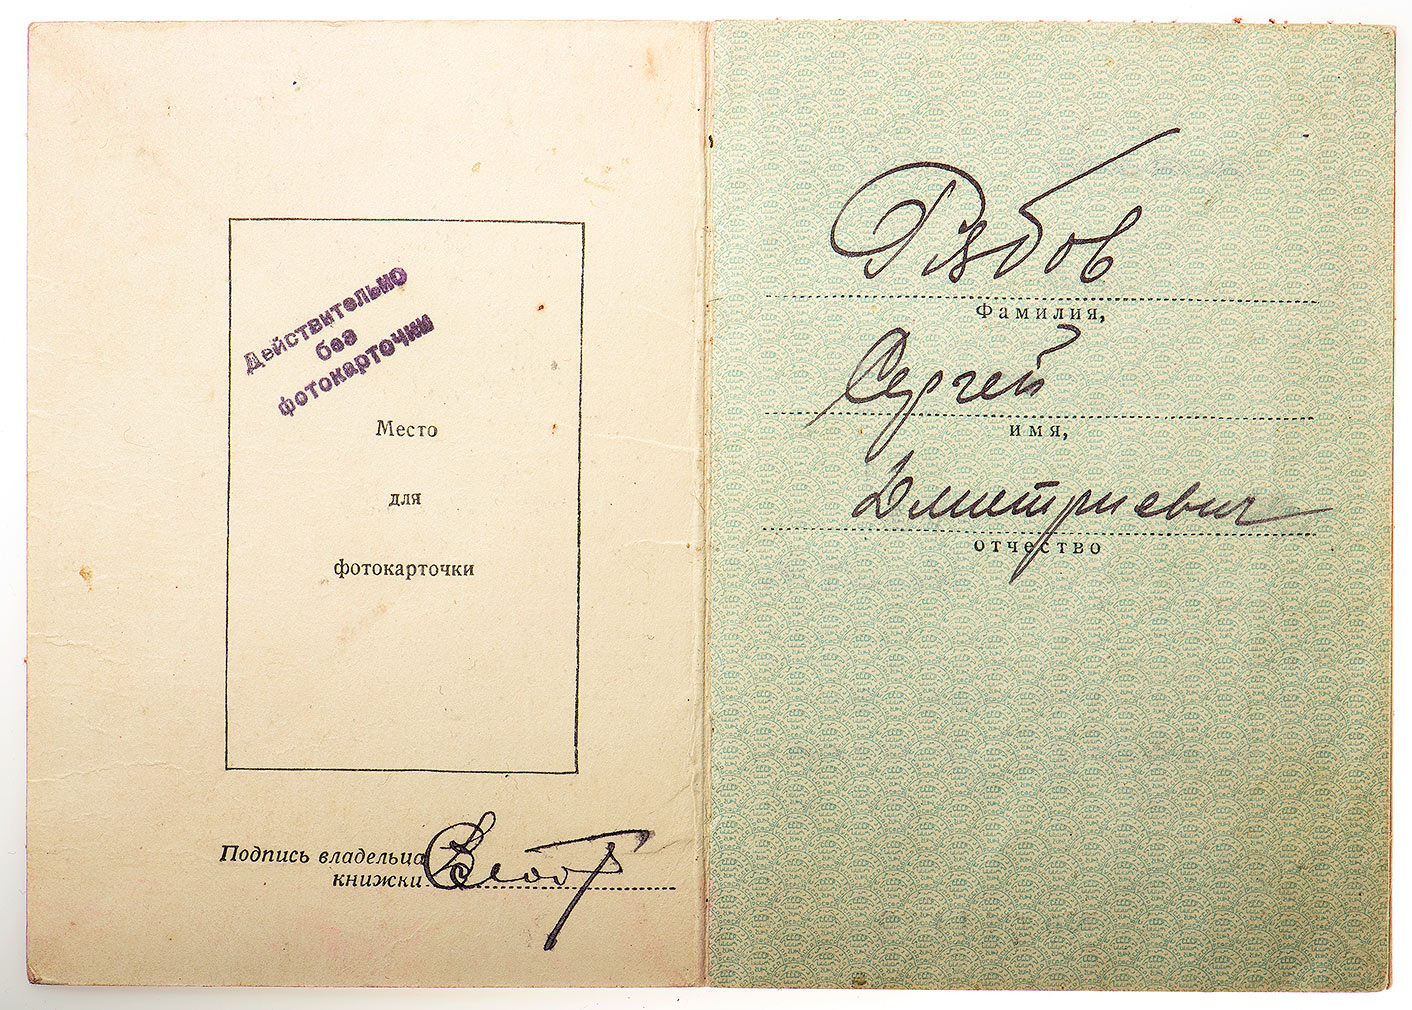 Действительно
без
фотокарточки
Место
для
фотокарточки
Подпись владельца
книжки
Рябов
Фамилия,
Сергей
имя,
Дмитриевич
отчество